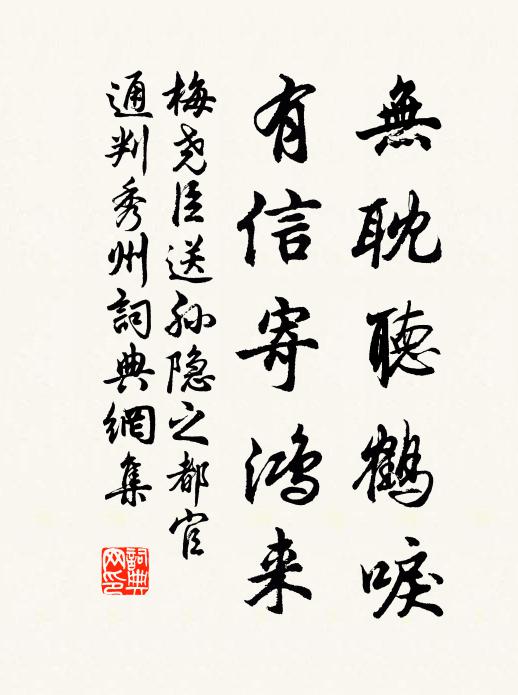 無耽聽鶴唳
有信寄鴻来
梅堯臣送孙隐之都官
通判秀州詞典網集
詞典网印